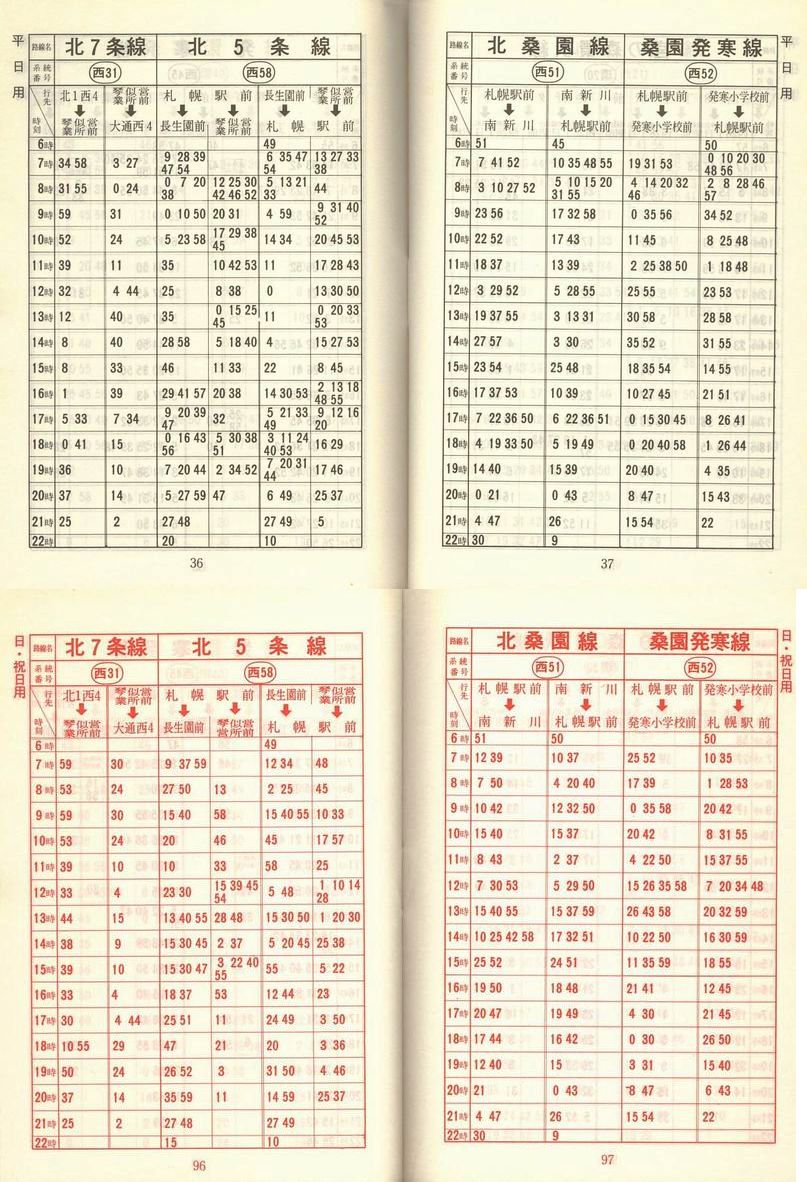 平日用
路線名 北7条線 北5条線
系統番号 西31 西58
行先 時刻 北1西4 ↓ 琴似営業所前 琴似営業所前 ↓ 大通西4 札幌駅前 ↓ 長生園前 琴似営業所前 長生園前 琴似営業所前 ↓ 札幌駅前
6時 49
7時 34 58 3 27 9 28 39 47 54 6 35 47 54 13 27 33 38
8時 31 55 0 24 0 7 20 38 12 25 30 42 46 52 5 13 21 33 44
9時 59 31 0 10 50 20 31 4 59 9 31 40 52
10時 52 24 5 23 58 17 29 38 45 14 34 20 45 53
11時 39 11 35 10 42 53 11 17 28 43
12時 32 4 44 25 8 38 0 13 30 50
13時 12 40 35 0 15 25 45 11 0 20 33 53
14時 8 40 28 58 5 18 40 4 15 27 53
15時 8 33 46 11 33 22 8 45
16時 1 39 29 41 57 20 38 14 30 53 2 13 18 48 55
17時 5 33 7 34 9 20 39 47 32 5 21 33 49 9 12 16 20
18時 0 41 15 0 16 43 56 5 30 38 51 3 11 24 40 53 16 29
19時 36 10 7 20 44 2 34 52 7 20 31 44 17 46
20時 37 14 5 27 59 47 6 49 25 37
21時 25 2 27 48 27 49 5
22時 20 10
36
平日用
路線名 北桑園線 桑園発寒線
系統番号 西51 西52
行先 時刻 札幌駅前 ↓ 南新川 南新川 ↓ 札幌駅前 札幌駅前 ↓ 発寒小学校前 発寒小学校前 ↓ 札幌駅前
6時 51 45 50
7時 7 41 52 10 35 48 55 19 31 53 0 10 20 30 48 56
8時 3 10 27 52 5 10 15 20 31 55 4 14 20 32 46 2 8 28 46 57
9時 23 56 17 32 58 0 35 56 34 52
10時 22 52 17 43 11 45 8 25 48
11時 18 37 13 39 2 25 38 50 1 18 48
12時 3 29 52 5 28 55 25 55 23 53
13時 19 37 55 3 13 31 30 58 28 58
14時 27 57 3 30 35 52 31 55
15時 23 54 25 48 18 35 54 14 55
16時 17 37 53 10 39 10 27 45 21 51
17時 7 22 36 50 6 22 36 51 0 15 30 45 8 26 41
18時 4 19 33 50 5 19 49 0 20 40 58 1 26 44
19時 14 40 15 39 20 40 4 35
20時 0 21 0 43 8 47 15 43
21時 4 47 26 15 54 22
22時 30 9
37
日・祝日用
路線名 北7条線 北5条線
系統番号 西31 西58
行先 時刻 北1西4 ↓ 琴似営業所前 琴似営業所前 ↓ 大通西4 札幌駅前 ↓ 長生園前 琴似営業所前 長生園前 琴似営業所前 ↓ 札幌駅前
6時 49
7時 59 30 9 37 59 12 34 48
8時 53 24 27 50 13 2 25 45
9時 59 30 15 40 58 15 40 55 10 33
10時 53 24 20 46 45 17 57
11時 39 10 10 33 58 25
12時 33 4 23 30 15 39 45 54 5 48 1 10 14 28
13時 44 15 13 40 55 28 48 15 30 50 1 20 30
14時 38 9 15 30 45 2 37 5 20 45 25 38
15時 39 10 15 30 47 3 22 40 55 55 5 22
16時 33 4 18 37 53 12 44 23
17時 30 4 44 25 51 11 24 49 3 50
18時 10 55 29 47 21 20 3 36
19時 50 24 26 52 3 31 50 4 46
20時 37 14 35 59 11 14 59 25 37
21時 25 2 27 48 27 49
22時 15 10
96
日・祝日用
路線名 北桑園線 桑園発寒線
系統番号 西51 西52
行先 時刻 札幌駅前 ↓ 南新川 南新川 ↓ 札幌駅前 札幌駅前 ↓ 発寒小学校前 発寒小学校前 ↓ 札幌駅前
6時 51 50 50
7時 12 39 10 37 25 52 10 35
8時 7 50 4 20 40 17 39 1 28 53
9時 10 42 12 32 50 0 35 58 20 42
10時 15 40 15 37 20 42 8 31 55
11時 8 43 2 37 4 22 50 15 37 55
12時 7 30 53 5 29 50 15 26 35 58 7 20 34 48
13時 15 40 55 15 37 59 26 43 58 20 32 59
14時 10 25 42 58 17 32 51 10 22 50 16 30 59
15時 25 52 24 51 11 35 59 18 55
16時 19 50 18 48 21 41 12 45
17時 20 47 19 49 4 30 21 45
18時 17 44 16 42 0 30 26 50
19時 12 40 15 3 31 15 40
20時 21 0 43 8 47 6 43
21時 4 47 26 15 54 22
22時 30 9
97